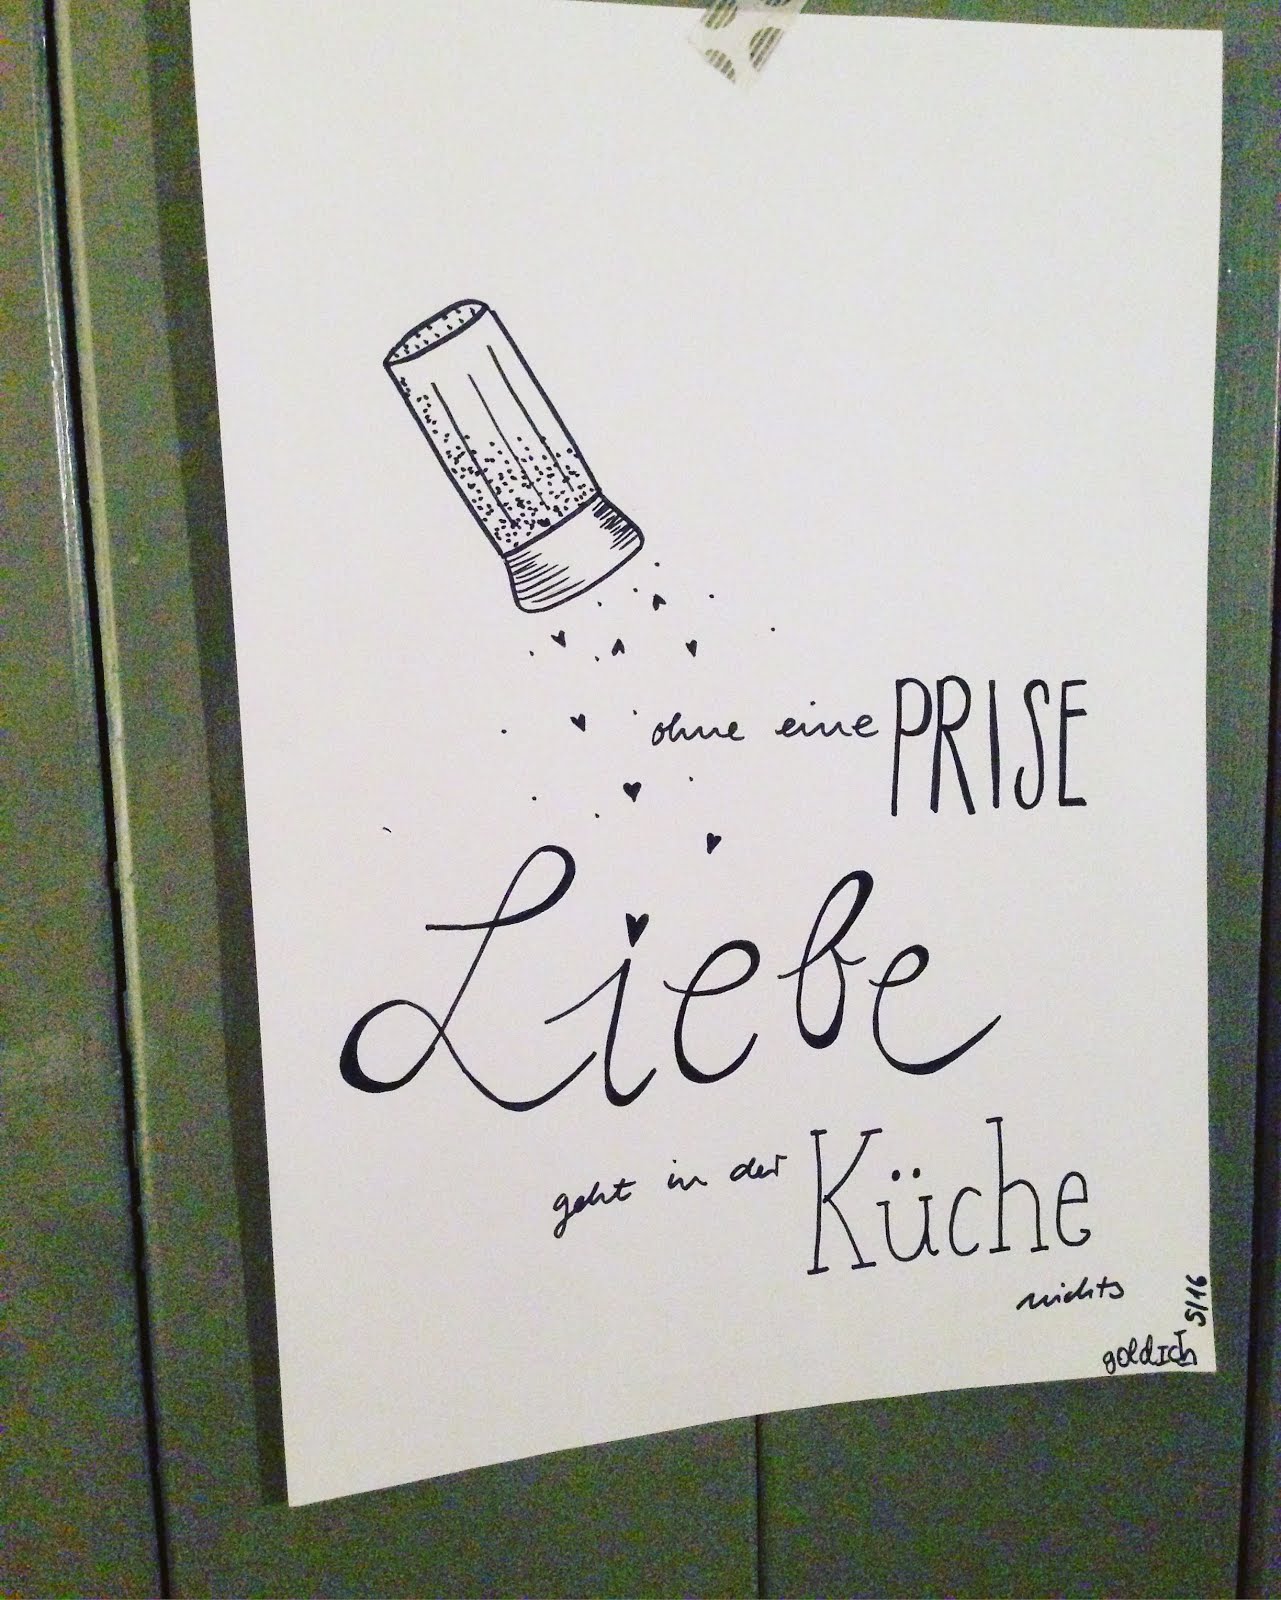 ohne eine PRISE
Liebe
geht in der Küche
nichts
goldich 5/16